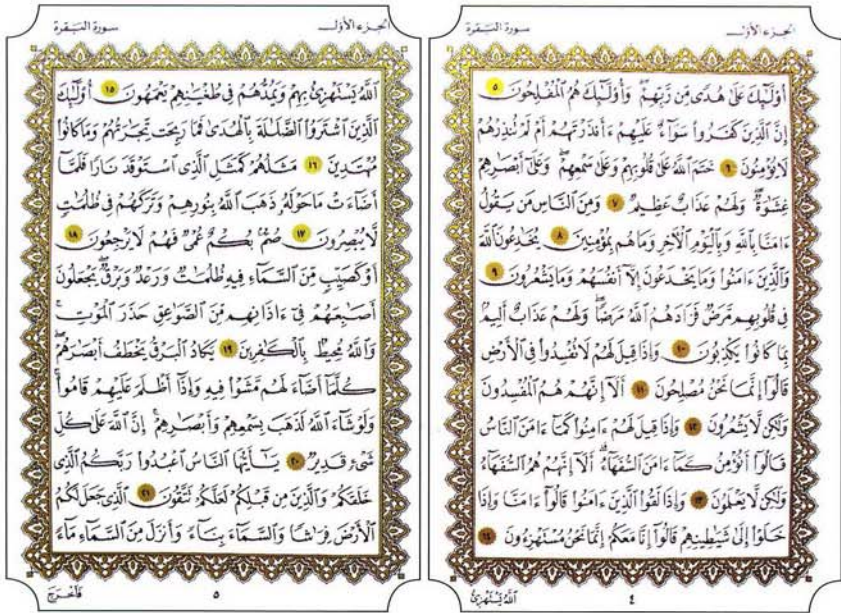 الجزء الأول
سورة البقرة
أُوْلَٰٓئِكَ عَلَىٰ هُدًى مِّن رَّبِّهِمْ ۖ وَأُوْلَٰٓئِكَ هُمُ ٱلْمُفْلِحُونَ ٥
إِنَّ ٱلَّذِينَ كَفَرُوا۟ سَوَآءٌ عَلَيْهِمْ ءَأَنذَرْتَهُمْ أَمْ لَمْ تُنذِرْهُمْ
لَا يُؤْمِنُونَ ٦ خَتَمَ ٱللَّهُ عَلَىٰ قُلُوبِهِمْ وَعَلَىٰ سَمْعِهِمْ ۖ وَعَلَىٰٓ أَبْصَٰرِهِمْ
غِشَٰوَةٌ ۖ وَلَهُمْ عَذَابٌ عَظِيمٌ ٧ وَمِنَ ٱلنَّاسِ مَن يَقُولُ
ءَامَنَّا بِٱللَّهِ وَبِٱلْيَوْمِ ٱلْءَاخِرِ وَمَا هُم بِمُؤْمِنِينَ ٨ يُخَٰدِعُونَ ٱللَّهَ
وَٱلَّذِينَ ءَامَنُوا۟ وَمَا يَخْدَعُونَ إِلَّآ أَنفُسَهُمْ وَمَا يَشْعُرُونَ ٩
فِى قُلُوبِهِم مَّرَضٌ فَزَادَهُمُ ٱللَّهُ مَرَضًا ۖ وَلَهُمْ عَذَابٌ أَلِيمٌۢ
بِمَا كَانُوا۟ يَكْذِبُونَ ١٠ وَإِذَا قِيلَ لَهُمْ لَا تُفْسِدُوا۟ فِى ٱلْأَرْضِ
قَالُوٓا۟ إِنَّمَا نَحْنُ مُصْلِحُونَ ١١ أَلَآ إِنَّهُمْ هُمُ ٱلْمُفْسِدُونَ
وَلَٰكِن لَّا يَشْعُرُونَ ١٢ وَإِذَا قِيلَ لَهُمْ ءَامِنُوا۟ كَمَآ ءَامَنَ ٱلنَّاسُ
قَالُوٓا۟ أَنُؤْمِنُ كَمَآ ءَامَنَ ٱلسُّفَهَآءُ ۗ أَلَآ إِنَّهُمْ هُمُ ٱلسُّفَهَآءُ
وَلَٰكِن لَّا يَعْلَمُونَ ١٣ وَإِذَا لَقُوا۟ ٱلَّذِينَ ءَامَنُوا۟ قَالُوٓا۟ ءَامَنَّا وَإِذَا
خَلَوْا۟ إِلَىٰ شَيَٰطِينِهِمْ قَالُوٓا۟ إِنَّا مَعَكُمْ إِنَّمَا نَحْنُ مُسْتَهْزِءُونَ ١٤
٤
ٱللَّهُ يَسْتَهْزِئُ
الجزء الأول
سورة البقرة
ٱللَّهُ يَسْتَهْزِئُ بِهِمْ وَيَمُدُّهُمْ فِى طُغْيَٰنِهِمْ يَعْمَهُونَ ١٥ أُوْلَٰٓئِكَ
ٱلَّذِينَ ٱشْتَرَوُا۟ ٱلضَّلَٰلَةَ بِٱلْهُدَىٰ فَمَا رَبِحَت تِّجَٰرَتُهُمْ وَمَا كَانُوا۟
مُهْتَدِينَ ١٦ مَثَلُهُمْ كَمَثَلِ ٱلَّذِى ٱسْتَوْقَدَ نَارًا فَلَمَّآ
أَضَآءَتْ مَا حَوْلَهُۥ ذَهَبَ ٱللَّهُ بِنُورِهِمْ وَتَرَكَهُمْ فِى ظُلُمَٰتٍ
لَّا يُبْصِرُونَ ١٧ صُمٌّۢ بُكْمٌ عُمْىٌ فَهُمْ لَا يَرْجِعُونَ ١٨
أَوْ كَصَيِّبٍ مِّنَ ٱلسَّمَآءِ فِيهِ ظُلُمَٰتٌ وَرَعْدٌ وَبَرْقٌ يَجْعَلُونَ
أَصَٰبِعَهُمْ فِىٓ ءَاذَانِهِم مِّنَ ٱلصَّوَٰعِقِ حَذَرَ ٱلْمَوْتِ ۚ
وَٱللَّهُ مُحِيطٌۢ بِٱلْكَٰفِرِينَ ١٩ يَكَادُ ٱلْبَرْقُ يَخْطَفُ أَبْصَٰرَهُمْ ۖ
كُلَّمَآ أَضَآءَ لَهُم مَّشَوْا۟ فِيهِ وَإِذَآ أَظْلَمَ عَلَيْهِمْ قَامُوا۟ ۚ
وَلَوْ شَآءَ ٱللَّهُ لَذَهَبَ بِسَمْعِهِمْ وَأَبْصَٰرِهِمْ ۚ إِنَّ ٱللَّهَ عَلَىٰ كُلِّ
شَىْءٍ قَدِيرٌ ٢٠ يَٰٓأَيُّهَا ٱلنَّاسُ ٱعْبُدُوا۟ رَبَّكُمُ ٱلَّذِى
خَلَقَكُمْ وَٱلَّذِينَ مِن قَبْلِكُمْ لَعَلَّكُمْ تَتَّقُونَ ٢١ ٱلَّذِى جَعَلَ لَكُمُ
ٱلْأَرْضَ فِرَٰشًا وَٱلسَّمَآءَ بِنَآءً وَأَنزَلَ مِنَ ٱلسَّمَآءِ مَآءً
٥
فَأَخْرَجَ